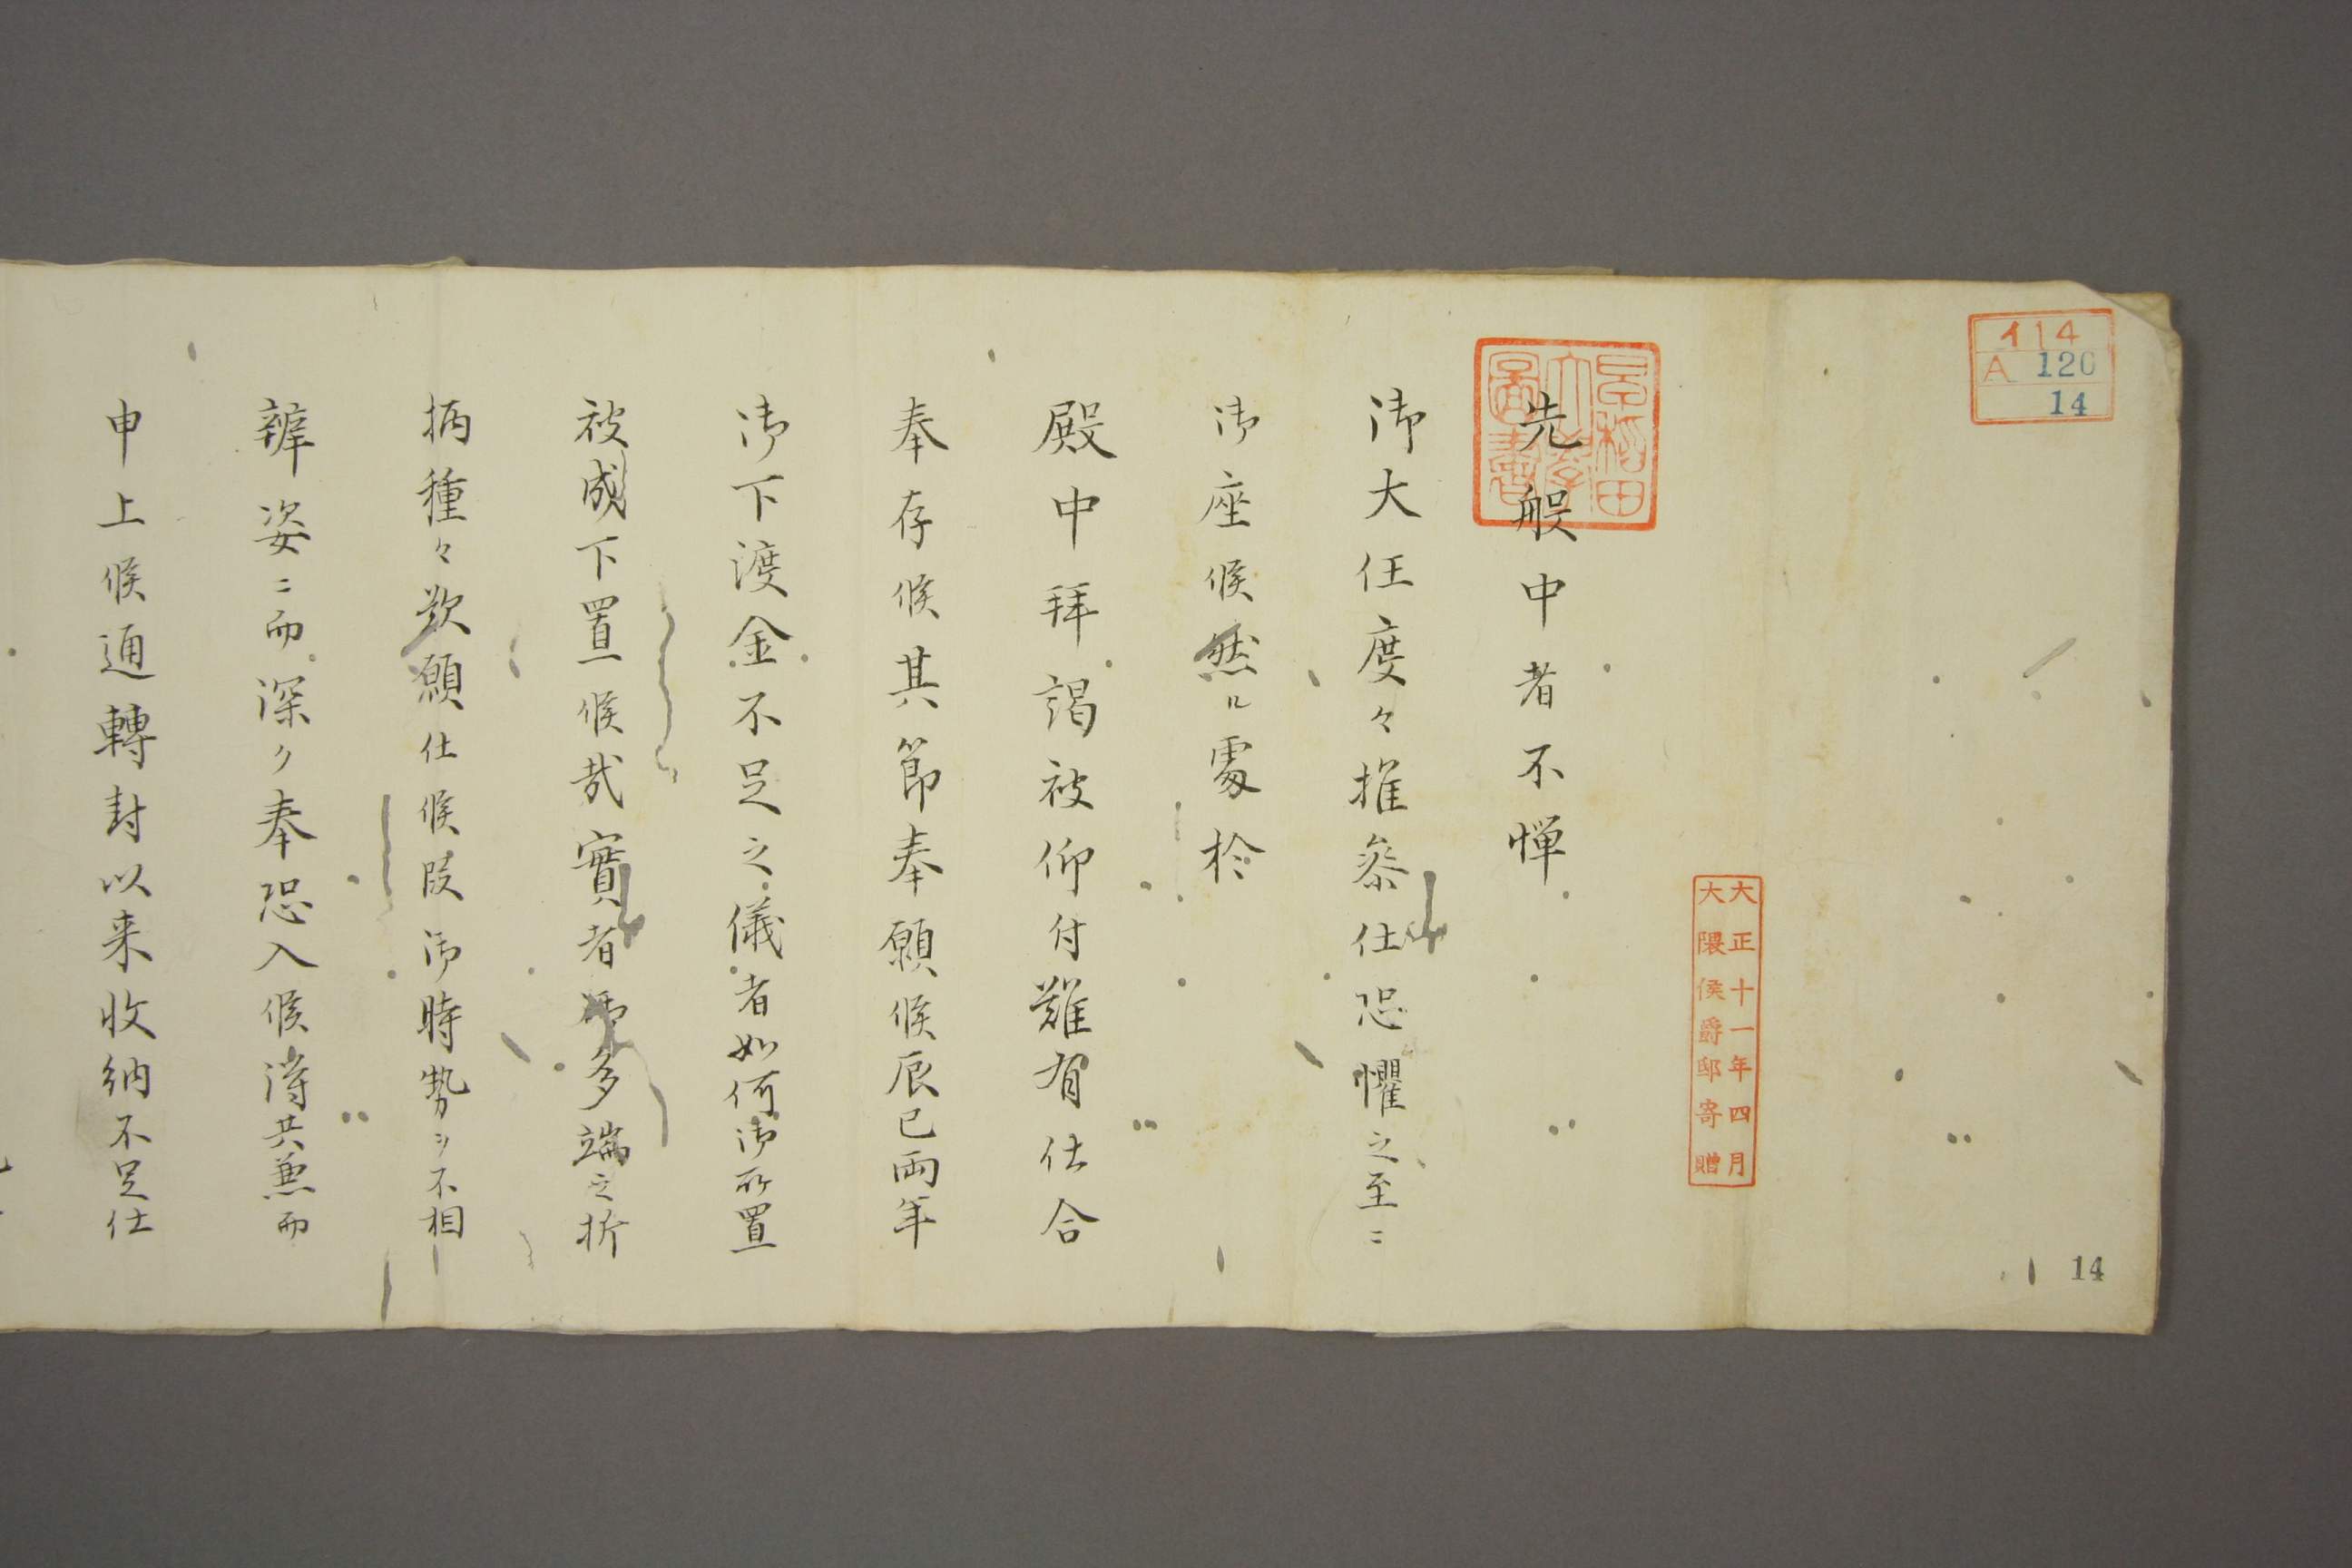 イ14
A 120
14
早稲田大学図書
大正十一年四月
大隈侯爵邸寄贈
先般中者不憚
御大任度々推参仕恐懼之至ニ
御座候然ル處於
殿中拜謁被仰付難有仕合
奉存候其節奉願候辰巳両年
御下渡金不足之儀者如何御所置
被成下置候哉實者御多端之折
柄種々歎願仕候段御時勢ヲ不相
辨姿ニ而深ク奉恐入候得共兼而
申上候通轉封以来收納不足仕
14